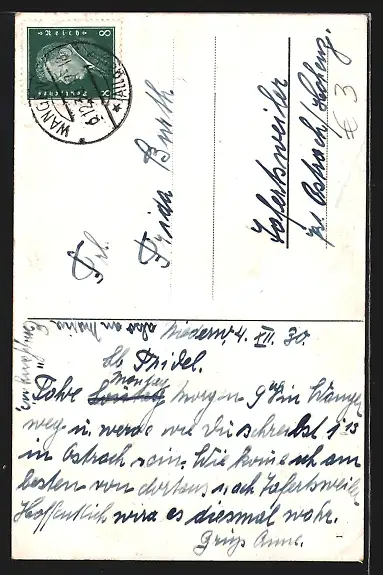 Deutsches Reich
8 8
WANG
ALLG
Frl.
Frida Burth
Jafertsweiler
ps. Ostrach/Hohenz.
€ 3
4. XII. 30.
Lb Fridel.
Fahre Montag morgen 9 in Wangen
weg u. werde wie Du schreibst 1 13
in Ostrach sein. Wie komme ich am
besten von dort aus nach Jafertsweiler
Hoffentlich wird es diesmal wahr.
Gruß Anna.